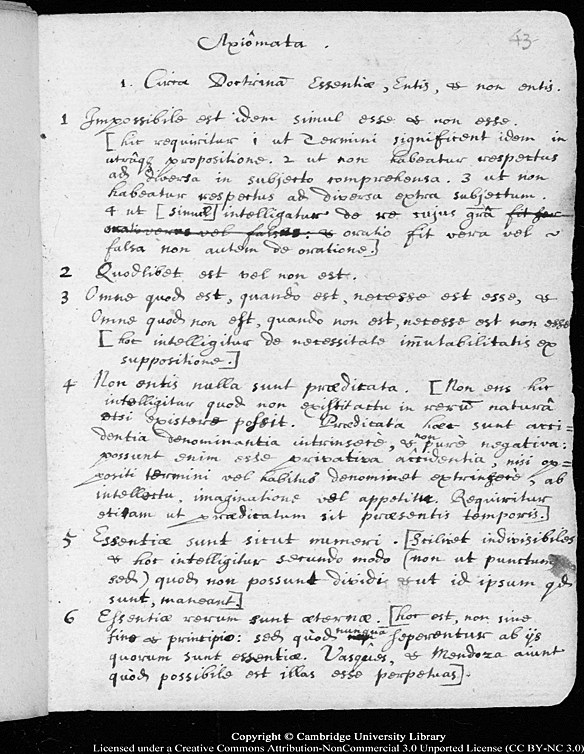 43
Axiômata.
1. Circa Doctrinā Essentiæ, Entis, & non entis.
1 Impossibile est idem simul esse & non esse.
[hic requiritur 1 ut Termini significent idem in
utrâq; propositione. 2 ut non habeatur respectus
ad diversa in subjecto comprehensa. 3 ut non
habeatur respectus ad diversa extra subjectum.
4 ut [simul] intelligatur de re cujus grâ fit per
oratio vera vel falsa: & oratio fit vera vel
falsa non autem de oratione.]
2 Quodlibet est vel non est.
3 Omne quod est, quando est, necesse est esse, &
Omne quod non est, quando non est, necesse est non esse
[hoc intelligitur de necessitate im̄utabilitatis ex
suppositione.]
4 Non entis nulla sunt prædicata. [Non ens hic
intelligitur quod non existit actu in rerū naturâ
etsi existere possit. Prædicata hæc sunt acci-
dentia denominantia intrinsecè, & non purè negativa:
possunt enim esse privativa accidentia, nisi op-
positi termini vel habitus denominet extrinsecè, ab
intellectu, imaginatione vel appetitu. Requiritur
etiam ut prædicatum sit præsentis temporis.]
5 Essentiæ sunt sicut numeri. [Scilicet indivisibiles
& hoc intelligitur secundo modo (non ut punctum
sed) quod non possunt dividi & ut id ipsum qd
sunt, maneant]
6 Essentiæ rerum sunt æternæ. [hoc est, non sine
fine & principio: sed quòd nunquā seperentur ab ijs
quorum sunt essentiæ. Vasques, & Mendoza aiunt
quod possibile est illas esse perpetuas].
Copyright © Cambridge University Library
Licensed under a Creative Commons Attribution-NonCommercial 3.0 Unported License (CC BY-NC 3.0)